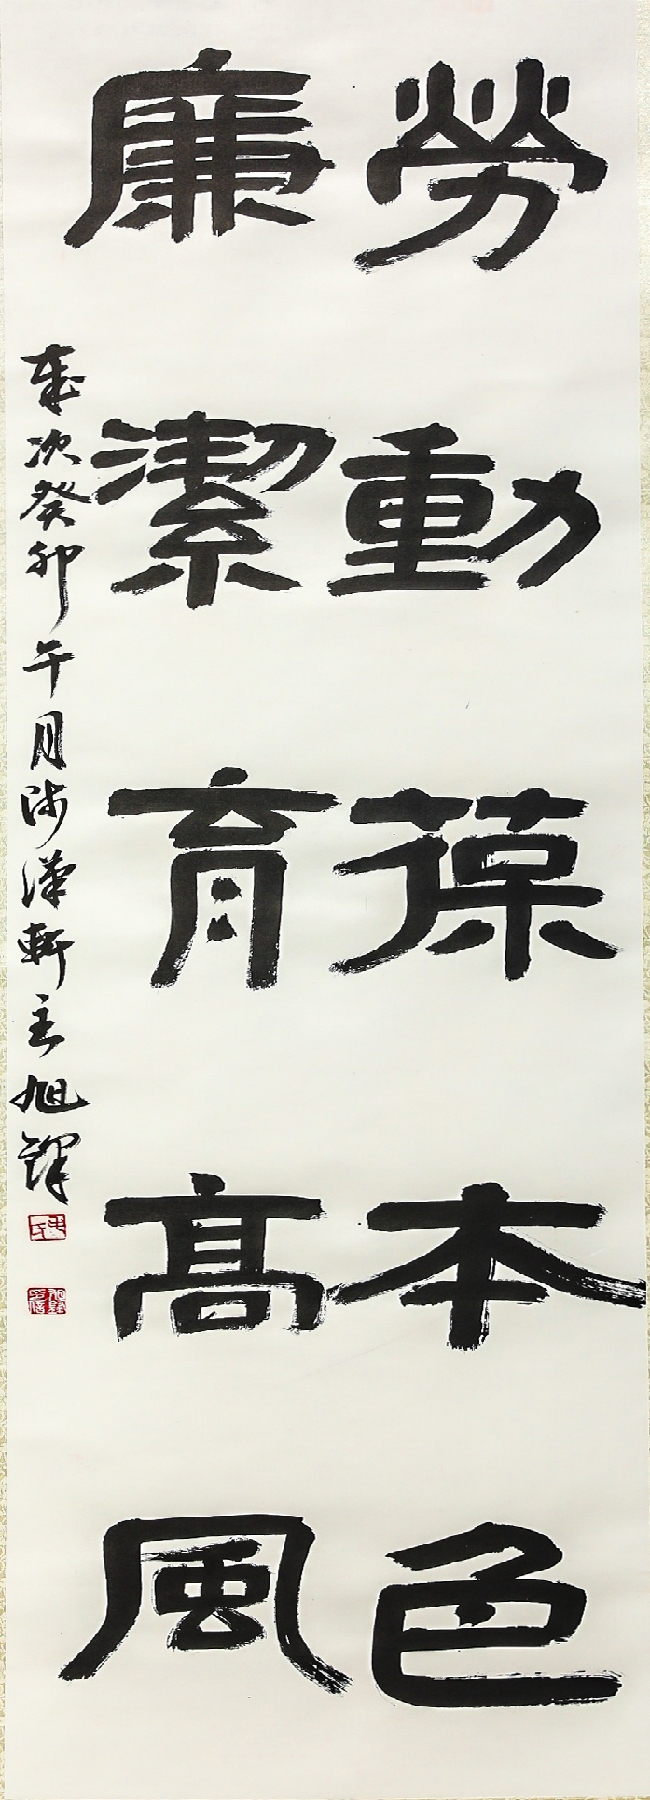 勞動葆本色
廉潔育高風
歲次癸卯午月沛漢軒主旭鐸